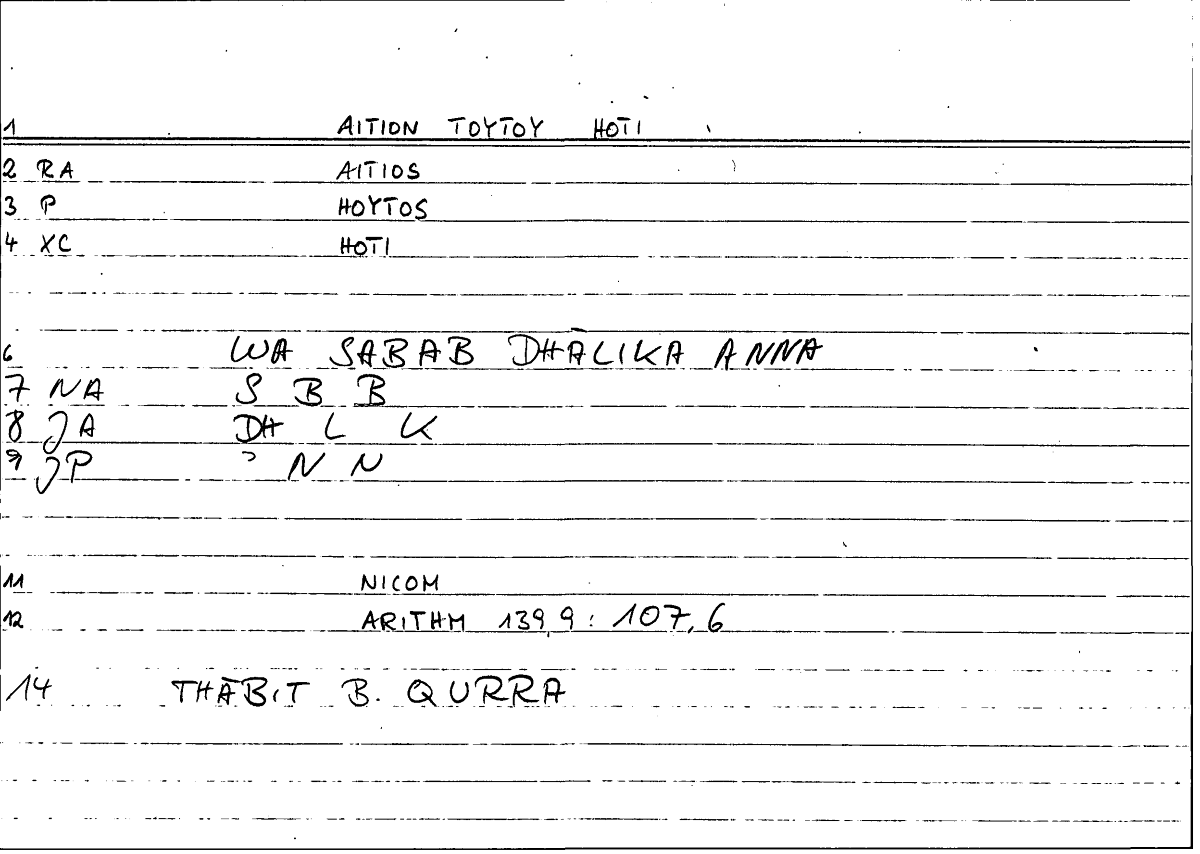 1 AITION TOYTOY HOTI
2 RA AITIOS
3 P HOYTOS
4 XC HOTI
6 WA SABAB DHĀLIKA ANNA
7 NA S B B
8 JA DH L K
9 JP ʾ N N
11 NICOM
12 ARITHM 139,9 : 107,6
14 THĀBIT B. QURRA